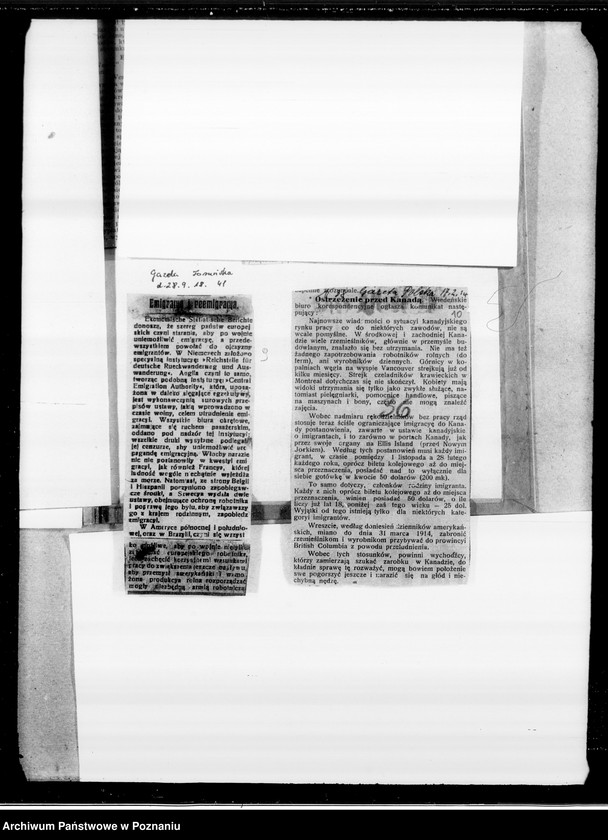 Gazeta
d. 28.9.18.
9
Emigracya i reemigracya.
Ekonomische Statistische Berichte
donoszą, że szereg państw europej-
skich czyni starania, aby po wojnie
uniemożliwić emigracyę, a przede-
wszystkiem powołać do ojczyzny
emigrantów. W Niemczech założono
specyalną instytucyę »Reichstelle für
deutsche Rueckwanderung und Aus-
wanderung«. Anglia czyni to samo,
tworząc podobną instytucyę »Central
Emigration Authority«, która, uposa-
żona w daleko sięgające egzekutywę,
jest wykonawczynią surowych prze-
pisów ustawy, jaką wprowadzono w
czasie wojny, celem utrudnienia emi-
gracyi. Wszystkie biura okrętowe,
zajmujące się ruchem pasażerskim,
oddano pod nadzór tej instytucyi
wszelkie druki wysyłane podlegają
jej cenzurze, aby uniemożliwić pro-
pagandę emigracyjną. Włochy narazie
nic nie postanowiły w kwestyi emi-
gracyi, jak również Francya, której
ludność wogóle niechętnie wyjeżdża
za morze. Natomiast, ze strony Belgii
i Hiszpanii poczyniono zapobiegaw-
cze środki, a Szwecya wydała dwie
ustawy, obejmujące ochronę robotnika
i poprawę jego bytu, aby związawszy
go z krajem rodzinnym, zapobiedz
emigracyi.
W Ameryce północnej i południo-
wej, oraz w Brazylii, czyni się wszyst-
ko możliwe, aby po wojnie
europejskiego robotnika,
korzystnymi warunkami
pracy do zwiększenia jeszcze napływu,
aby przemysł amerykański i
produkcya rolna rozporządzać
mogły niezbędną armią robotniczą
Gazeta Polska 17.2.14
10
Ostrzeżenie przed Kanadą. Wiedeńskie
biuro korespondencyjne ogłasza komunikat nastę-
pujący:
Najnowsze wiadomości o sytuacyi kanadyjskiego
rynku pracy co do niektórych zawodów, nie są
wcale pomyślne. W środkowej i zachodniej Kana-
dzie wiele rzemieślników, głównie w przemyśle bu-
dowlanym, znalazło się bez utrzymania. Nie ma też
żadnego zapotrzebowania robotników rolnych (do
ferm), ani wyrobników dziennych. Górnicy w ko-
palniach węgla na wyspie Vancouver strejkują już od
kilku miesięcy. Strejk czeladników krawieckich w
Montreal dotychczas się nie skończył. Kobiety mają
widoki utrzymania się tylko jako zwykłe służące, na-
tomiast pielęgniarki, pomocnice handlowe, piszące
na maszynach i bony, często nie mogą znaleźć
zajęcia.
26
Wobec nadmiaru rękodzielników bez pracy rząd
stosuje teraz ściśle ograniczające imigracyę do Kana-
dy postanowienia, zawarte w ustawie kanadyjskie
o imigrantach, i to zarówno w portach Kanady, jak
przez swoje organy na Ellis Island (przed Nowym
Jorkiem). Według tych postanowień musi każdy imi-
grant, w czasie pomiędzy 1 listopada a 28 lutego
każdego roku, oprócz biletu kolejowego aż do miej-
sca przeznaczenia, posiadać nad to wyłącznie dla
siebie gotówkę w kwocie 50 dolarów (200 mk).
To samo dotyczy, członków rodziny imigranta.
Każdy z nich oprócz biletu kolejowego aż do miejsca
przeznaczenia, winien posiadać 50 dolarów, o ile
liczy już lat 18, poniżej zaś tego wieku — 25 dol.
Wyjątki od tego istnieją tylko dla niektórych kate-
goryi imigrantów.
Wreszcie, według doniesień dzienników amerykań-
skich, miano do dnia 31 marca 1914, zabronić
rzemieślnikom i wyrobnikom przybywać do prowincyi
British Columbia z powodu przeludnienia.
Wobec tych stosunków, powinni wychodźcy,
którzy zamierzają szukać zarobku w Kanadzie, do-
kładnie sprawę tę rozważyć, mogą bowiem położenie
swe pogorszyć jeszcze i narazić się na głód i nie-
chybną nędzę.
Archiwum Państwowe w Poznaniu